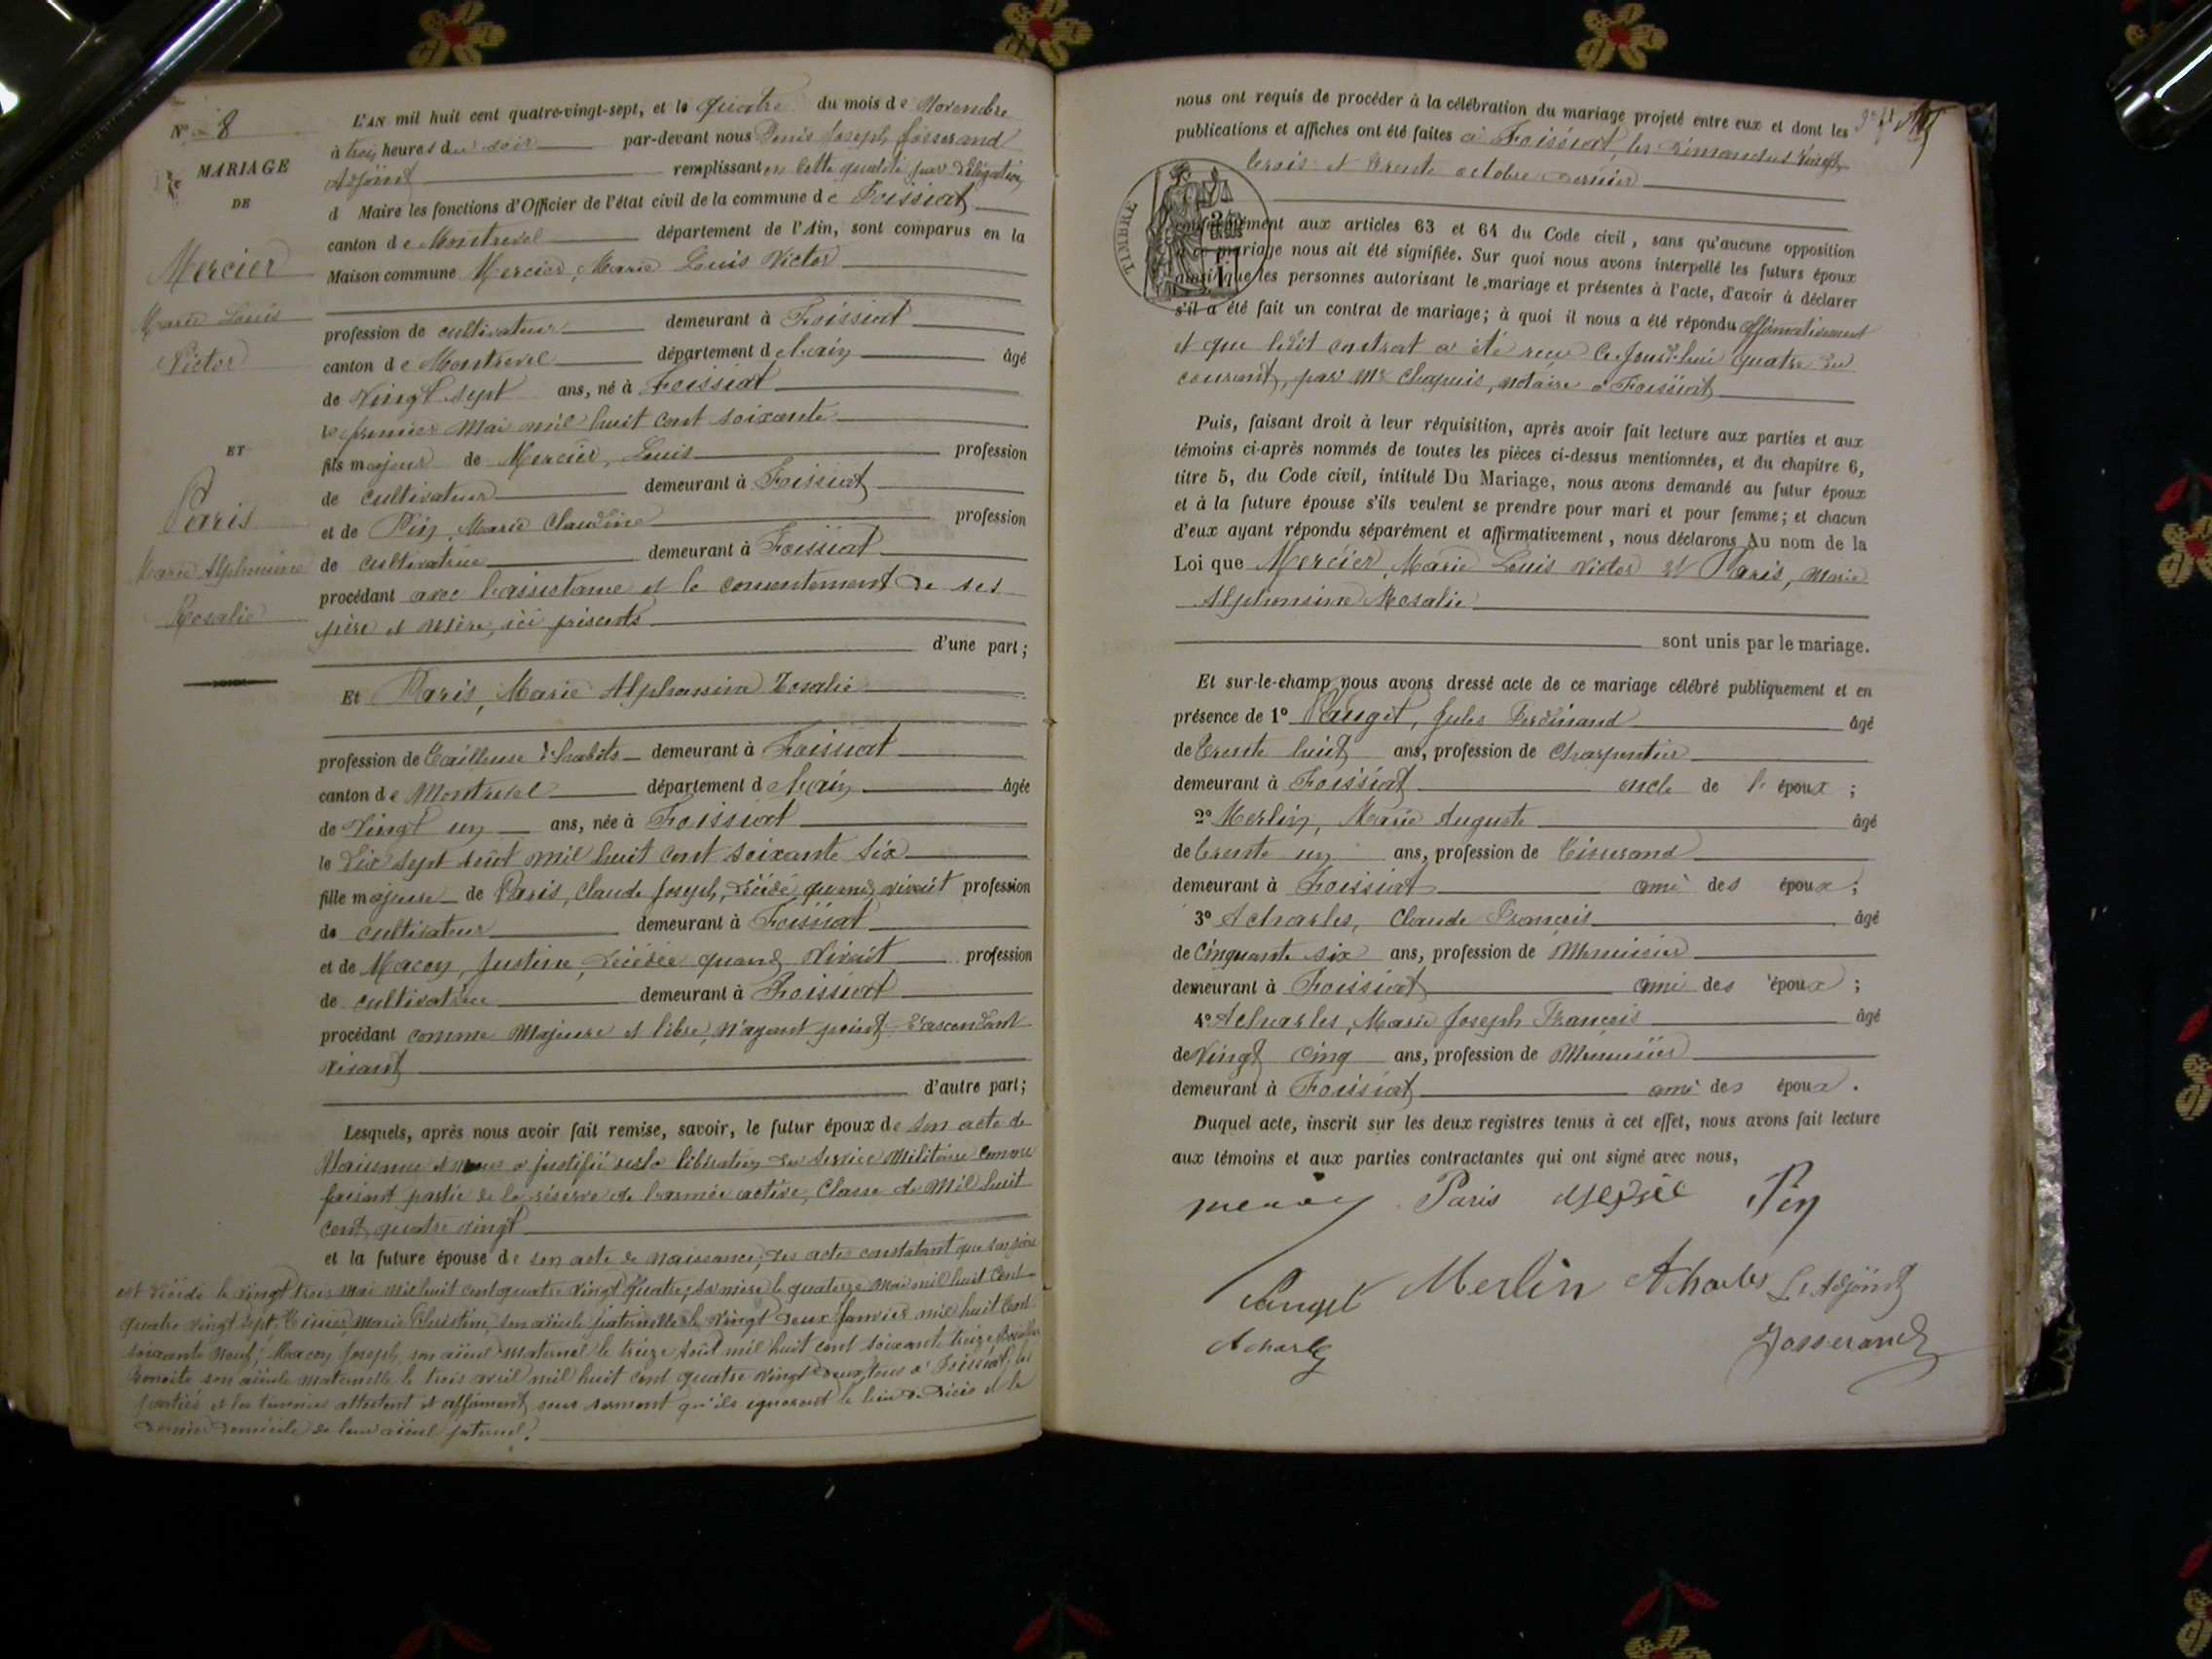 N° 8
MARIAGE
DE
Mercier
Marie Louis
Victor
ET
Paris
Marie Alphonsine
Rosalie
L'AN mil huit cent quatre-vingt-sept, et le quatre du mois de Novembre
à trois heures du soir par-devant nous Denis Joseph Josserand
Adjoint remplissant en cette qualité par délégation
d Maire les fonctions d'Officier de l'état civil de la commune de Foissiat
canton de Montrevel département de l'Ain, sont comparus en la
Maison commune Mercier, Marie Louis Victor
profession de cultivateur demeurant à Foissiat
canton de Montrevel département de l'ain âgé
de Vingt sept ans, né à Foissiat
le premier Mai mil huit cent soixante
fils majeur de Mercier, Louis profession
de cultivateur demeurant à Foissiat
et de Pin, Marie Claudine profession
de cultivatrice demeurant à Foissiat
procédant avec l'assistance et le consentement de ses
père et mère, ici présents
d'une part;
Et Paris, Marie Alphonsine Rosalie
profession de tailleuse d'habits demeurant à Foissiat
canton de Montrevel département de l'ain âgée
de Vingt un ans, née à Foissiat
le Dix sept Août mil huit cent soixante six
fille majeure de Paris, Claude Joseph, décédé quand vivait profession
de cultivateur demeurant à Foissiat
et de Macon, Justine, décédée quand vivait profession
de cultivatrice demeurant à Foissiat
procédant comme Majeure et libre, n'ayant point d'ascendant
vivant
d'autre part;
Lesquels, après nous avoir fait remise, savoir, le futur époux de son acte de
Naissance et nous a justifié de sa libération du service Militaire comme
faisant partie de la réserve de l'armée active, Classe de Mil huit
cent quatre vingt
et la future épouse de son acte de naissance, des actes constatant que son père
est décédé le vingt trois mai mil huit cent quatre vingt quatre; sa mère le quatorze mai mil huit cent
quatre vingt sept, Marie Christine, son aïeule paternelle le vingt deux Janvier mil huit cent
soixante neuf; Macon Joseph, son aïeul maternel le treize Août mil huit cent soixante treize
Benoite son aïeule maternelle le trois avril mil huit cent quatre vingt deux, tous à Foissiat, les
parties et les témoins attestent et affirment sous serment qu'ils ignorent le lieu de décès et le
dernier domicile de leur aïeul paternel.
nous ont requis de procéder à la célébration du mariage projeté entre eux et dont les
publications et affiches ont été faites à Foissiat, les dimanches vingt
trois et trente octobre dernier
TIMBRE
conformément aux articles 63 et 64 du Code civil, sans qu'aucune opposition
à ce mariage nous ait été signifiée. Sur quoi nous avons interpellé les futurs époux
ainsi que les personnes autorisant le mariage et présentes à l'acte, d'avoir à déclarer
s'il a été fait un contrat de mariage; à quoi il nous a été répondu affirmativement
et que ledit contrat a été reçu ce jourd'hui quatre du
courant, par Me Chapuis, notaire à Foissiat
Puis, faisant droit à leur réquisition, après avoir fait lecture aux parties et aux
témoins ci-après nommés de toutes les pièces ci-dessus mentionnées, et du chapitre 6,
titre 5, du Code civil, intitulé Du Mariage, nous avons demandé au futur époux
et à la future épouse s'ils veulent se prendre pour mari et pour femme; et chacun
d'eux ayant répondu séparément et affirmativement, nous déclarons Au nom de la
Loi que Mercier, Marie Louis Victor et Paris, Marie
Alphonsine Rosalie
sont unis par le mariage.
Et sur-le-champ nous avons dressé acte de ce mariage célébré publiquement et en
présence de 1° Pauget, Jules Ferdinand âgé
de trente huit ans, profession de Charpentier
demeurant à Foissiat oncle de l' époux;
2° Merlin, Marie Auguste âgé
de trente un ans, profession de tisserand
demeurant à Foissiat ami des époux;
3° Acharles, Claude François âgé
de Cinquante six ans, profession de Menuisier
demeurant à Foissiat ami des époux;
4° Acharles, Marie Joseph François âgé
de Vingt Cinq ans, profession de Menuisier
demeurant à Foissiat ami des époux.
Duquel acte, inscrit sur les deux registres tenus à cet effet, nous avons fait lecture
aux témoins et aux parties contractantes qui ont signé avec nous,
Paris Pin
Pauget Merlin Acharles L'Adjoint
Acharles Josserand